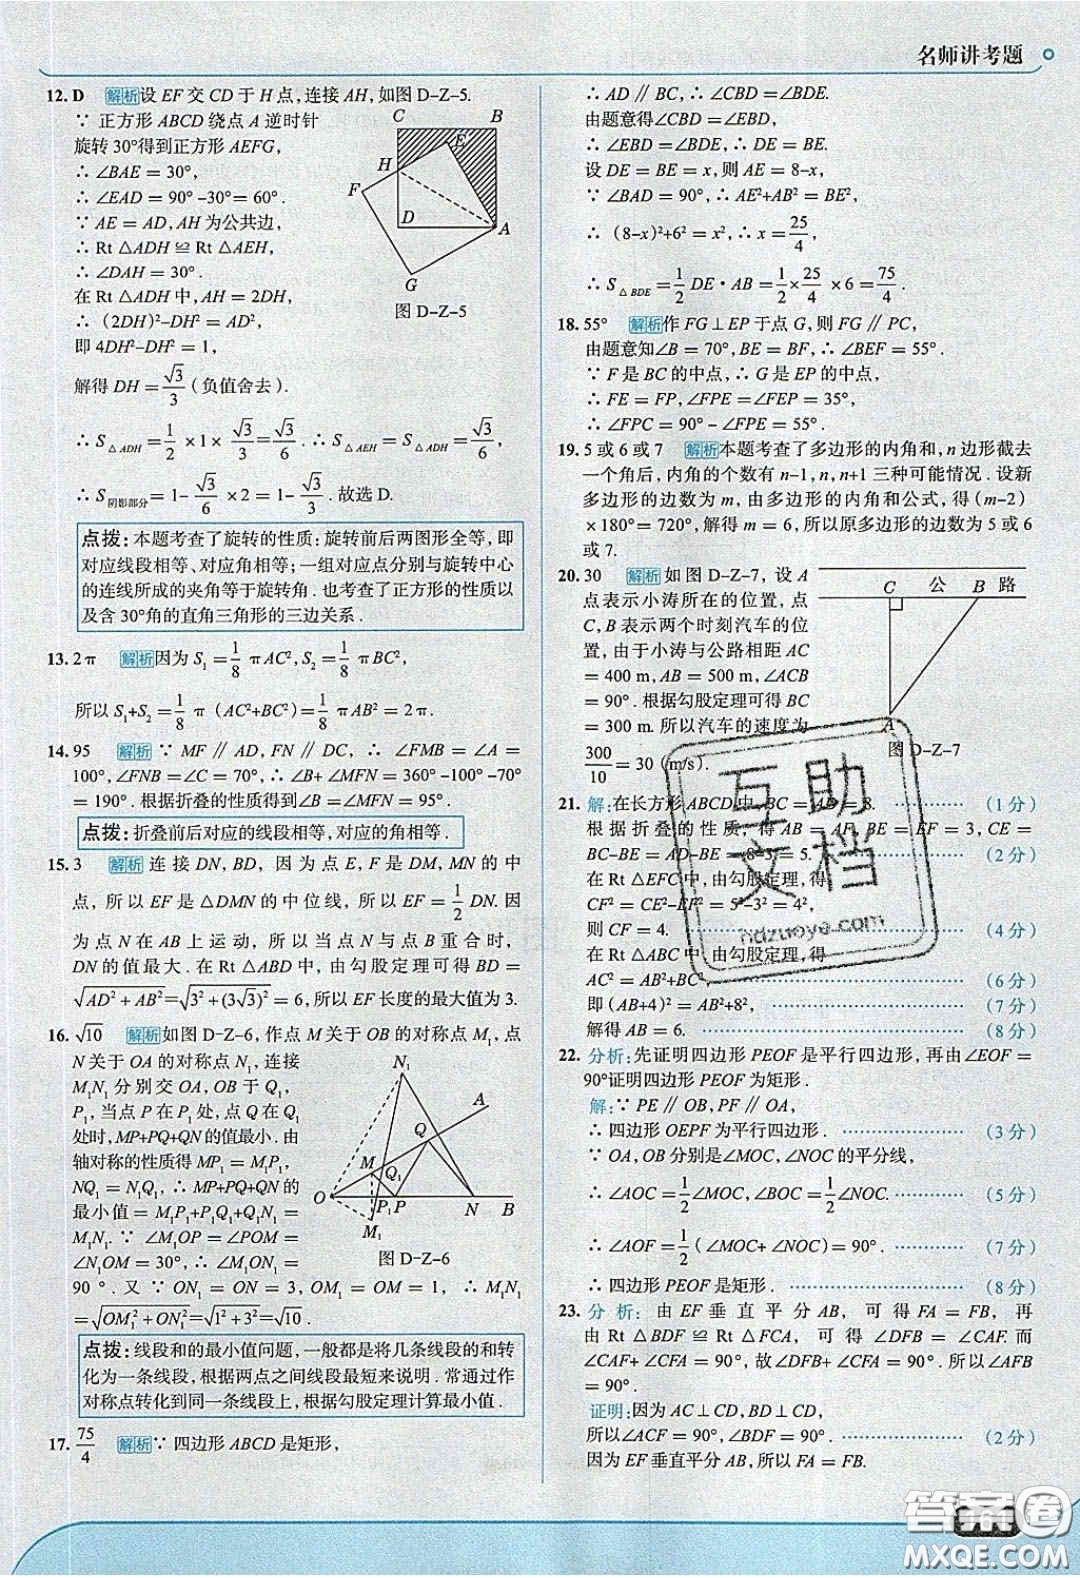 名师讲考题
12. D 解析 设 EF 交 CD 于 H 点,连接 AH,如图 D-Z-5.
∵ 正方形 ABCD 绕点 A 逆时针
旋转 30°得到正方形 AEFG,
∴ ∠BAE = 30°,
∴ ∠EAD = 90° -30° = 60°.
∵ AE = AD, AH 为公共边,
∴ Rt △ADH ≌ Rt △AEH,
∴ ∠DAH = 30°.
在 Rt △ADH 中, AH = 2DH,
∴ (2DH)²-DH² = AD²,
即 4DH²-DH² = 1,
解得 DH = √3/3 (负值舍去).
C B E H F D A G
图 D-Z-5
∴ S△ADH = 1/2 ×1× √3/3 = √3/6. ∴ S△AEH = S△ADH = √3/6,
∴ S阴影部分 = 1- √3/6 ×2 = 1- √3/3. 故选 D.
点拨: 本题考查了旋转的性质:旋转前后两图形全等,即
对应线段相等、对应角相等;一组对应点分别与旋转中心
的连线所成的夹角等于旋转角. 也考查了正方形的性质以
及含 30°角的直角三角形的三边关系.
13. 2π 解析 因为 S₁ = 1/8 πAC², S₂ = 1/8 πBC²,
所以 S₁+S₂ = 1/8 π (AC²+BC²) = 1/8 πAB² = 2π.
14. 95 解析 ∵ MF ∥ AD, FN ∥ DC, ∴ ∠FMB = ∠A =
100°, ∠FNB = ∠C = 70°, ∴ ∠B+ ∠MFN = 360° -100° -70°
= 190°. 根据折叠的性质得到∠B = ∠MFN = 95°.
点拨: 折叠前后对应的线段相等,对应的角相等.
15. 3 解析 连接 DN, BD, 因为点 E, F 是 DM, MN 的中
点, 所以 EF 是 △DMN 的中位线, 所以 EF = 1/2 DN. 因
为点 N 在 AB 上运动, 所以当点 N 与点 B 重合时,
DN 的值最大. 在 Rt △ABD 中, 由勾股定理可得 BD =
√AD² + AB² = √3² + (3√3)² = 6, 所以 EF 长度的最大值为 3.
16. √10 解析 如图 D-Z-6, 作点 M 关于 OB 的对称点 M₁, 点
N 关于 OA 的对称点 N₁, 连接
M₁N₁ 分别交 OA, OB 于 Q₁,
P₁, 当点 P 在 P₁ 处,点 Q 在 Q₁
处时, MP+PQ+QN 的值最小. 由
轴对称的性质得 MP₁ = M₁P₁,
NQ₁ = N₁Q₁, ∴ MP+PQ+QN 的
最小值 = M₁P₁+P₁Q₁+Q₁N₁ =
M₁N₁. ∵ ∠M₁OP = ∠POM =
∠N₁OM = 30°, ∴ ∠N₁OM₁ =
90°. 又 ∵ ON₁ = ON = 3, OM₁ = OM = 1, ∴ M₁N₁
= √OM₁² + ON₁² = √1² +3² = √10.
N₁ A Q M Q₁ O P₁ P N B M₁
图 D-Z-6
点拨: 线段和的最小值问题,一般都是将几条线段的和转
化为一条线段,根据两点之间线段最短来说明. 常通过作
对称点转化到同一条线段上,根据勾股定理计算最小值.
17. 75/4 解析 ∵ 四边形 ABCD 是矩形,
∴ AD ∥ BC, ∴ ∠CBD = ∠BDE.
由题意得∠CBD = ∠EBD,
∴ ∠EBD = ∠BDE, ∴ DE = BE.
设 DE = BE = x, 则 AE = 8-x,
∵ ∠BAD = 90°, ∴ AE²+AB² = BE²,
∴ (8-x)²+6² = x², ∴ x = 25/4,
∴ S△BDE = 1/2 DE·AB = 1/2 × 25/4 ×6 = 75/4.
18. 55° 解析 作 FG⊥EP 于点 G, 则 FG ∥ PC,
由题意知∠B = 70°, BE = BF, ∴ ∠BEF = 55°.
∵ F 是 BC 的中点, ∴ G 是 EP 的中点,
∴ FE = FP, ∠FPE = ∠FEP = 35°,
∴ ∠FPC = 90° -∠FPE = 55°.
19. 5 或 6 或 7 解析 本题考查了多边形的内角和, n 边形截去
一个角后,内角的个数有 n-1, n, n+1 三种可能情况. 设新
多边形的边数为 m, 由多边形的内角和公式, 得 (m-2)
×180° = 720°, 解得 m = 6, 所以原多边形的边数为 5 或 6
或 7.
20. 30 解析 如图 D-Z-7, 设 A
点表示小涛所在的位置, 点
C, B 表示两个时刻汽车的位
置, 由于小涛与公路相距 AC
= 400 m, AB = 500 m, ∠ACB
= 90°. 根据勾股定理可得 BC
= 300 m. 所以汽车的速度为
300/10 = 30 (m/s).
C 公 B 路
A
图 D-Z-7
21. 解: 在长方形 ABCD 中, BC = AD = 8. ………… (1 分)
根据折叠的性质, 得 AB = AF, BE = EF = 3, CE =
BC-BE = AD-BE = 8-3 = 5. ………… (2 分)
在 Rt △EFC 中, 由勾股定理, 得
CF² = CE²-EF² = 5²-3² = 4²,
则 CF = 4. ………… (4 分)
在 Rt △ABC 中, 由勾股定理, 得
AC² = AB²+BC², ………… (6 分)
即 (AB+4)² = AB²+8², ………… (7 分)
解得 AB = 6. ………… (8 分)
22. 分析: 先证明四边形 PEOF 是平行四边形, 再由∠EOF =
90°证明四边形 PEOF 为矩形.
解: ∵ PE ∥ OB, PF ∥ OA,
∴ 四边形 OEPF 为平行四边形. ………… (3 分)
∵ OA, OB 分别是∠MOC, ∠NOC 的平分线,
∴ ∠AOC = 1/2 ∠MOC, ∠BOC = 1/2 ∠NOC. ………… (5 分)
∴ ∠AOF = 1/2 (∠MOC+ ∠NOC) = 90°. ………… (7 分)
∴ 四边形 PEOF 是矩形. ………… (8 分)
23. 分析: 由 EF 垂直平分 AB, 可得 FA = FB, 再
由 Rt △BDF ≌ Rt △FCA, 可得 ∠DFB = ∠CAF. 而
∠CAF+ ∠CFA = 90°, 故∠DFB+∠CFA = 90°. 所以∠AFB
= 90°.
证明: 因为 AC⊥CD, BD⊥CD,
所以∠ACF = ∠BDF = 90°. ………… (2 分)
因为 EF 垂直平分 AB, 所以 FA = FB.
互助
文档
hdzuoye.com
答案圈
MXQE.COM